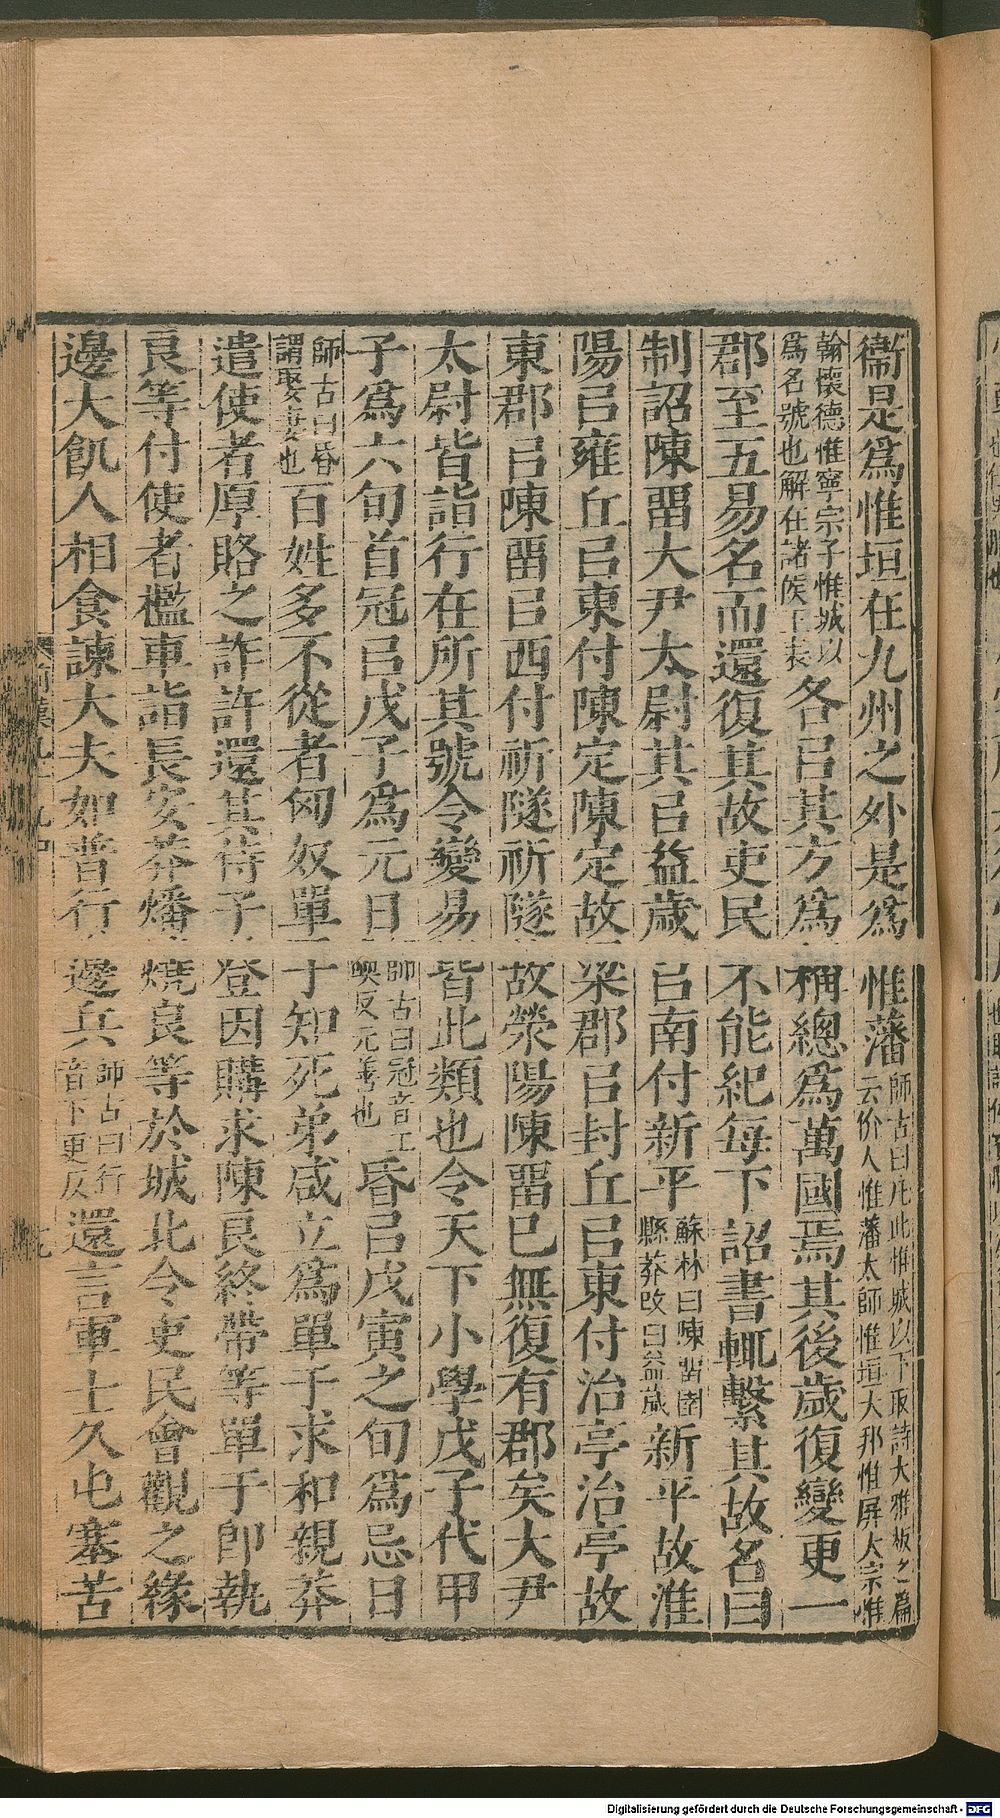 衞是爲惟垣在九州之外是爲惟藩師古曰凡此惟城以下取詩大雅板之篇云价人惟藩太師惟垣大邦惟屏大宗惟
翰懷德惟寧宗子惟城以爲名號也解在諸侯王表各㠯其方爲稱總爲萬國焉其後歲復變更一
郡至五易名而還復其故吏民不能紀每下詔書輒繫其故名曰
制詔陳畱大尹太尉其㠯益歲㠯南付新平蘇林曰陳畱圉縣莽改曰益歲新平故淮
陽㠯雍丘㠯東付陳定陳定故梁郡㠯封丘㠯東付治亭治亭故
東郡㠯陳畱㠯西付祈隧祈隧故滎陽陳畱已無復有郡矣大尹
太尉皆詣行在所其號令變易皆此類也令天下小學戊子代甲
子爲六旬首冠㠯戊子爲元日師古曰冠音工喚反元善也昏㠯戊寅之旬爲忌日
師古曰昏謂娶妻也百姓多不從者匈奴單于知死弟咸立爲單于求和親莽
遣使者厚賂之詐許還其侍子登因購求陳良終帶等單于卽執
良等付使者檻車詣長安莽燔燒良等於城北令吏民會觀之緣
邊大飢人相食諫大夫如普行邊兵師古曰行音下更反還言軍士久屯塞苦
Digitalisierung gefördert durch die Deutsche Forschungsgemeinschaft - DFG